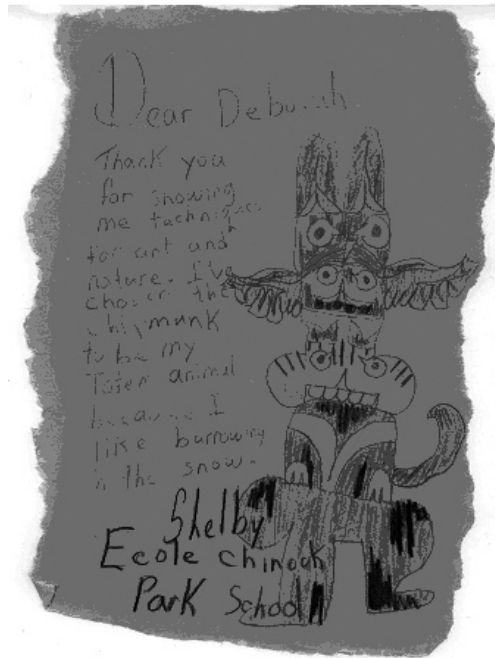 Dear Deborah
Thank you
for showing
me techniques
for art and
nature. I've
chosen the
chipmunk
to be my
Totem animal
because I
like burrowing
in the snow.
Shelby
Ecole Chinook
Park School